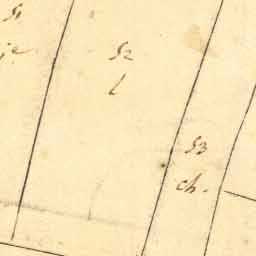 51
je
52
l
53
ch.